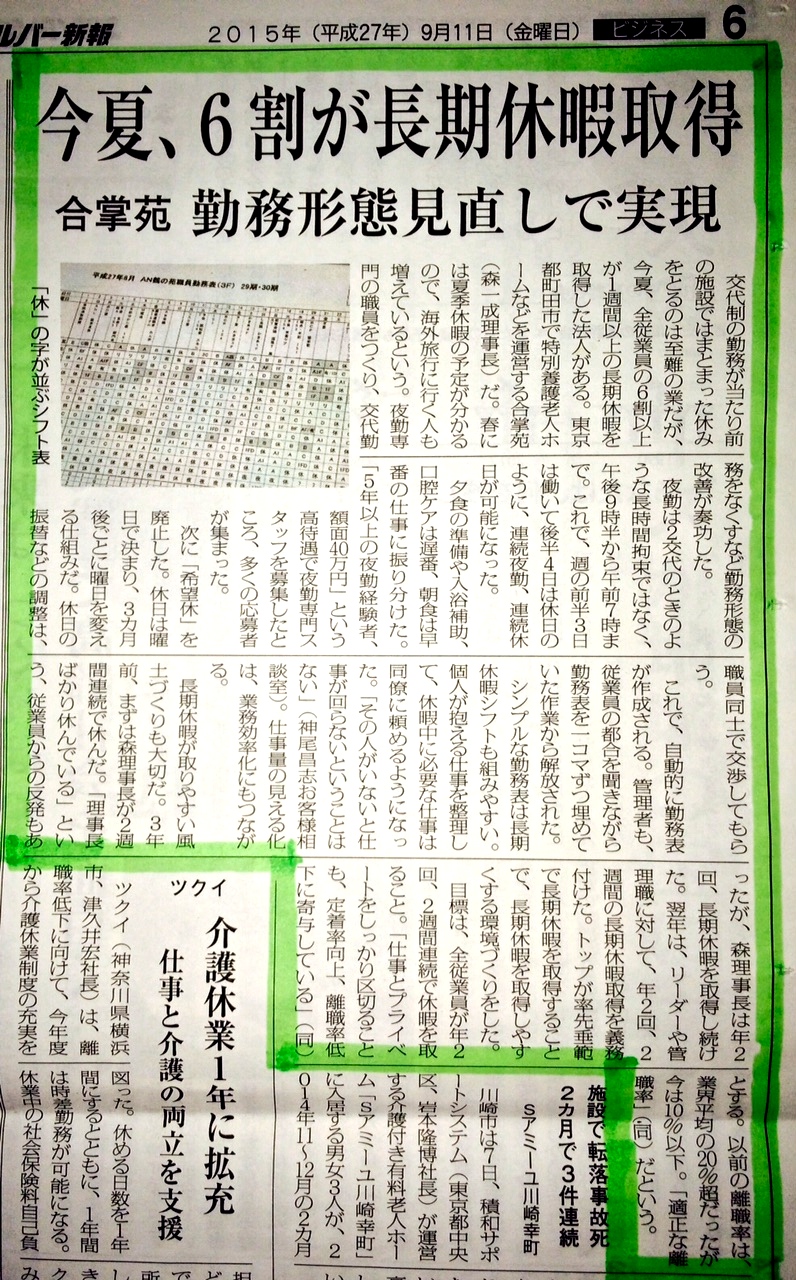 ルバー新報 2015年（平成27年）9月11日（金曜日） ビジネス 6
今夏、6割が長期休暇取得
合掌苑 勤務形態見直しで実現
交代制の勤務が当たり前
の施設ではまとまった休み
をとるのは至難の業だが、
今夏、全従業員の6割以上
が1週間以上の長期休暇を
取得した法人がある。東京
都町田市で特別養護老人ホ
ームなどを運営する合掌苑
（森一成理事長）だ。春に
は夏季休暇の予定が分かる
ので、海外旅行に行く人も
増えているという。夜勤専
門の職員をつくり、交代勤
平成27年8月 AN鶴の苑職員勤務表(3F) 29期・30期
「休」の字が並ぶシフト表
務をなくすなど勤務形態の
改善が奏功した。
夜勤は2交代のときのよ
うな長時間拘束ではなく、
午後9時半から午前7時ま
で。これで、週の前半3日
は働いて後半4日は休日の
ように、連続夜勤、連続休
日が可能になった。
夕食の準備や入浴補助、
口腔ケアは遅番、朝食は早
番の仕事に振り分けた。
「5年以上の夜勤経験者、
額面40万円」という
高待遇で夜勤専門ス
タッフを募集したと
ころ、多くの応募者
が集まった。
次に「希望休」を
廃止した。休日は曜
日で決まり、3カ月
後ごとに曜日を変え
る仕組みだ。休日の
振替などの調整は、
職員同士で交渉してもら
う。
これで、自動的に勤務表
が作成される。管理者も、
従業員の都合を聞きながら
勤務表を一コマずつ埋めて
いた作業から解放された。
シンプルな勤務表は長期
休暇シフトも組みやすい。
個人が抱える仕事を整理し
て、休暇中に必要な仕事は
同僚に頼めるようになっ
た。「その人がいないと仕
事が回らないということは
ない」（神尾昌志お客様相
談室）。仕事量の見える化
は、業務効率化にもつなが
る。
長期休暇が取りやすい風
土づくりも大切だ。3年
前、まずは森理事長が2週
間連続で休んだ。「理事長
ばかり休んでいる」とい
う、従業員からの反発もあ
ったが、森理事長は年2
回、長期休暇を取得し続け
た。翌年は、リーダーや管
理職に対して、年2回、2
週間の長期休暇取得を義務
付けた。トップが率先垂範
で長期休暇を取得すること
で、長期休暇を取得しやす
くする環境づくりをした。
目標は、全従業員が年2
回、2週間連続で休暇を取
ること。「仕事とプライベ
ートをしっかり区切ること
も、定着率向上、離職率低
下に寄与している」（同）
とする。以前の離職率は、
業界平均の20％超だったが
今は10％以下。「適正な離
職率」（同）だという。
ツクイ
介護休業1年に拡充
仕事と介護の両立を支援
ツクイ（神奈川県横浜
市、津久井宏社長）は、離
職率低下に向けて、今年度
から介護休業制度の充実を
図った。休める日数を1年
間にするとともに、1年間
は時差勤務が可能になる。
休業中の社会保険料自己負
施設で転落事故死
2カ月で3件連続
Sアミーユ川崎幸町
川崎市は7日、積和サポ
ートシステム（東京都中央
区、岩本隆博社長）が運営
する介護付き有料老人ホー
ム「Sアミーユ川崎幸町」
に入居する男女3人が、2
014年11～12月の2カ月